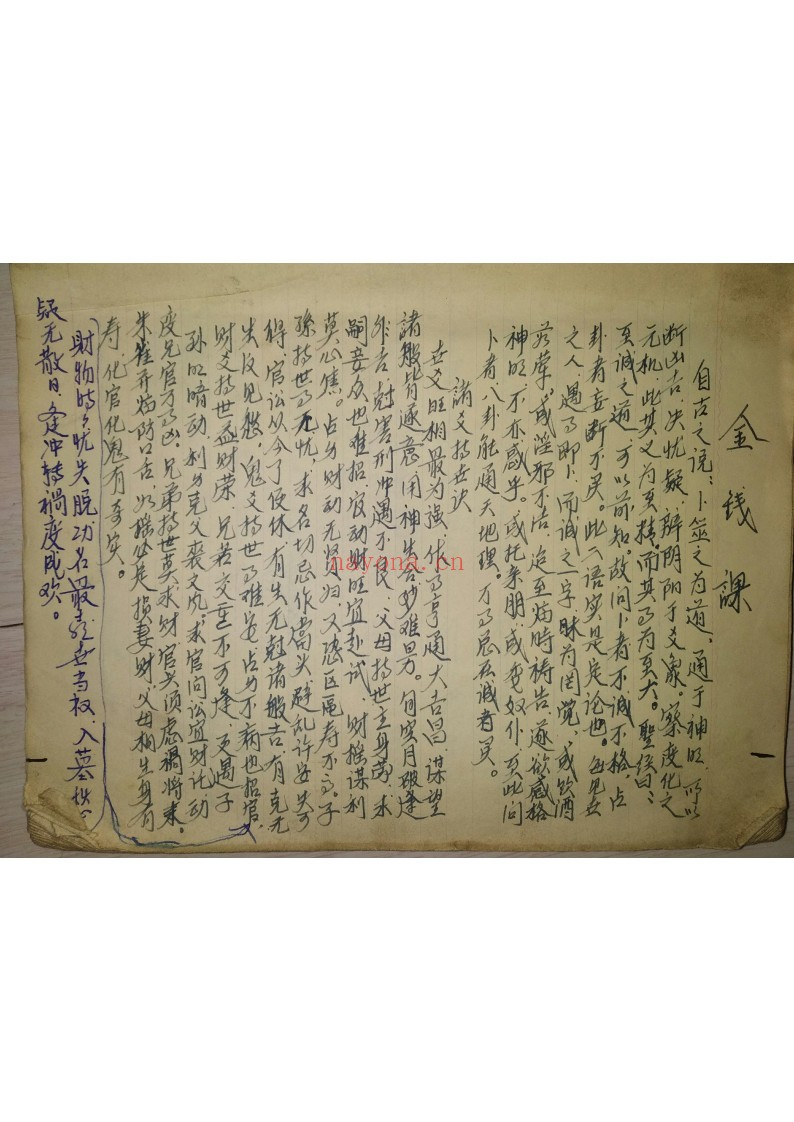 金钱課
自古之说：卜筮之为道、通于神明、所以
断凶吉、决忧疑、辟阴阳于爻象。察变化之
元机、此其义为至精而其事为至大。聖经曰：
至诚之道、可以前知。故问卜者不诚不格、占
卦者妄断不灵。此二语实是定论也。每见世
之人、遇事即卜、而诚之一字昧为罔觉、或饮酒
茹荤、或淫邪不洁、迨至病時祷告、遂欲感格
神明、不亦惑乎。或托亲朋、或委奴仆、至此问
卜者、八卦能通天地理。万事总在诚者灵。
諸爻持世诀
世爻旺相最为强、作事亨通大吉昌、谋望
諸般皆遂意、用神生合妙难量、旬空月破逢
非吉、尅害刑冲遇不良、父母持世主身劳、求
嗣妾众也难招、官动财旺宜赴试、财摇谋利
莫心焦。占身财动无贤妇、又恐区區寿不高。子
孙持世事无忧、求名切忌作当头、避乱许安失可
得、官讼从今了便休、有生无尅諸般吉、有克无
生反见愁、鬼爻持世事难安、占身不病也招官、
财爻持世益财荣、兄若交重不可逢、更遇子
孙明暗动、利身克父丧文风、求官问讼宜财託、动
变兄官万事凶、兄弟持世莫求财、官兴须虑禍将来、
朱雀并临防口舌、如摇必定损妻财、父母相生身有
寿、化官化鬼有奇灾。
財物時時忧失脱、功名最喜世当权、入墓
疑无散日、逢冲转禍变成欢。
nayona.cn